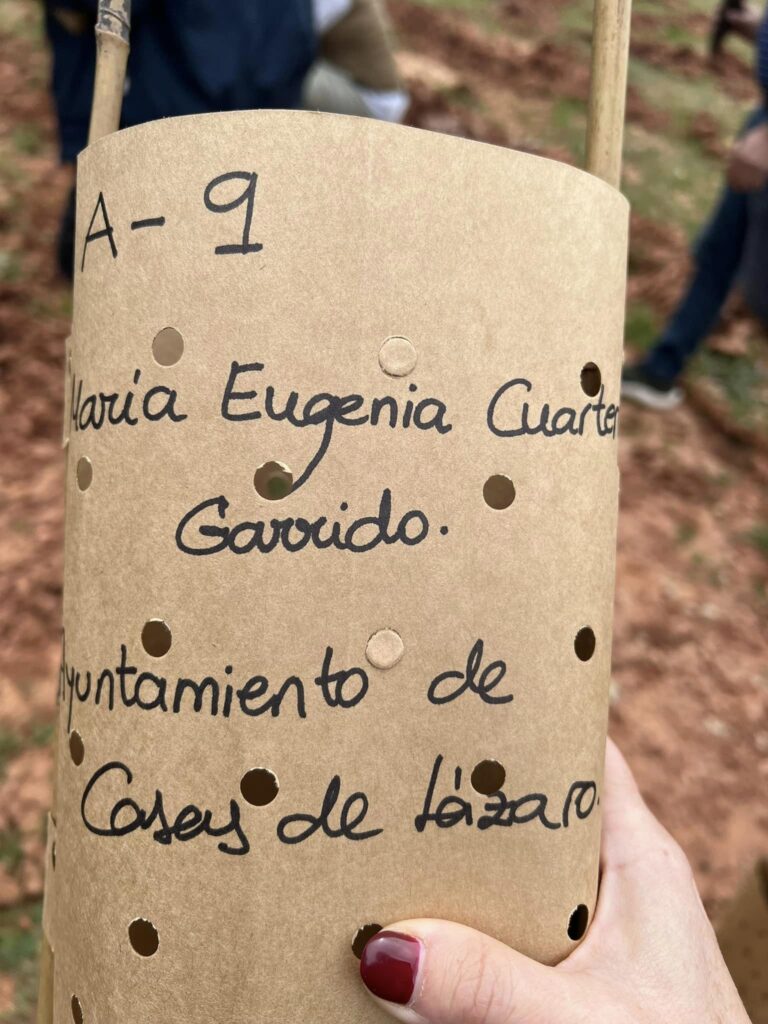 A-9
María Eugenia Cuarter
Garrido.
Ayuntamiento de
Casas de Lázaro.